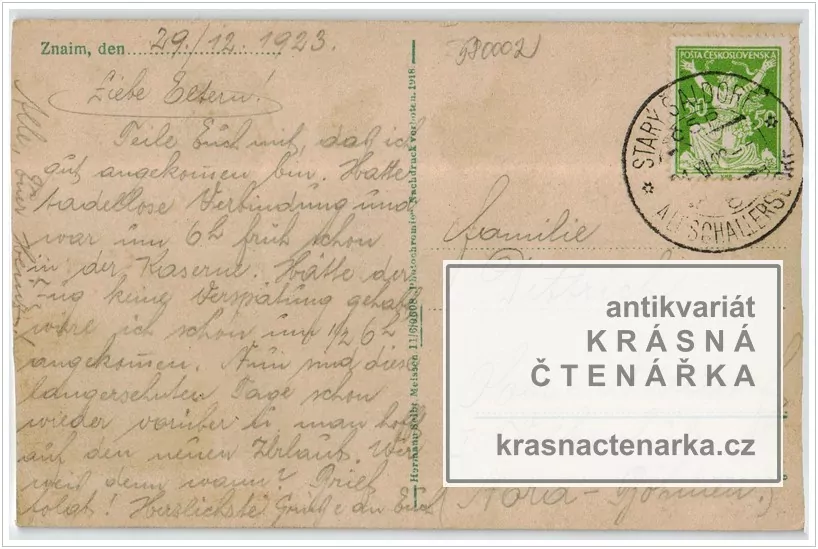 Znaim, den 29./12. 1923.
Liebe Eltern!
Teile Euch mit, daß ich
gut angekommen bin. Hatte
tadellose Verbindung und
war um 6h früh schon
in der Kaserne. Hätte der
Zug keine Verspätung gehabt
wäre ich schon um 1/2 6h
angekommen. Nun sind diese
langersehnten Tage schon
wieder vorüber u. man hofft
auf den neuen Urlaub. Wer
weis denn wann? Brief
folgt! Herzlichste Grüße an Euch
Alle, Euer
Hermann Seibt, Meissen 11/6/9608 "Photochromie" Nachdruck verboten. 1918.
POŠTA ČESKOSLOVENSKÁ
50
STARÝ ŠALDORF
ČSP
ALTSCHALLERSDORF
Familie
antikvariát
KRÁSNÁ
ČTENÁŘKA
krasnactenarka.cz
(Nord-Böhmen.)